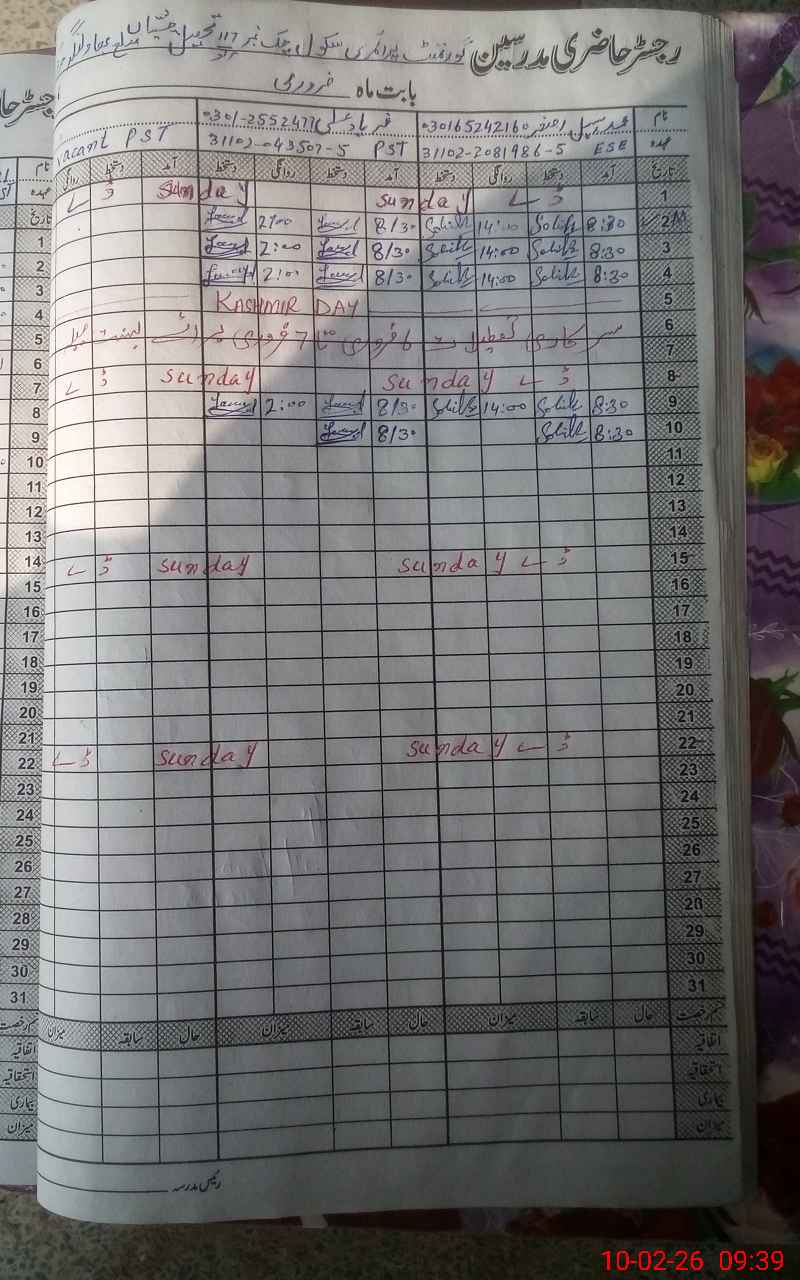 رجسٹر حاضری مدرسین گورنمنٹ پرائمری سکول چک نمبر 117 تحصیل
بابت ماہ فروری
نام 03016524216 0301-2552477
عہدہ ESE 31102-2081986-5 PST 31102-043507-5 vacant PST
تاریخ آمد دستخط روانگی دستخط آمد دستخط روانگی دستخط آمد دستخط روانگی
1 ڈے sunday sunday ڈے
2 8:30 14:00 8/30 2:00
3 8:30 14:00 8/30 2:00
4 8:30 14:00 8/30 2:00
5 KASHMIR DAY
6 سرکاری تعطیلات 6 فروری تا 7 فروری برائے بسنت میلہ
7
8 ڈے sunday sunday ڈے
9 8:30 14:00 8/30 2:00
10 8:30 8/30
11
12
13
14
15 ڈے sunday sunday ڈے
16
17
18
19
20
21
22 ڈے sunday sunday ڈے
23
24
25
26
27
28
29
30
31
قسم رخصت حال سابقہ میزان حال سابقہ میزان حال سابقہ میزان
اتفاقیہ
استحقاقیہ
بیماری
میزان
رئیس مدرسہ
10-02-26 09:39